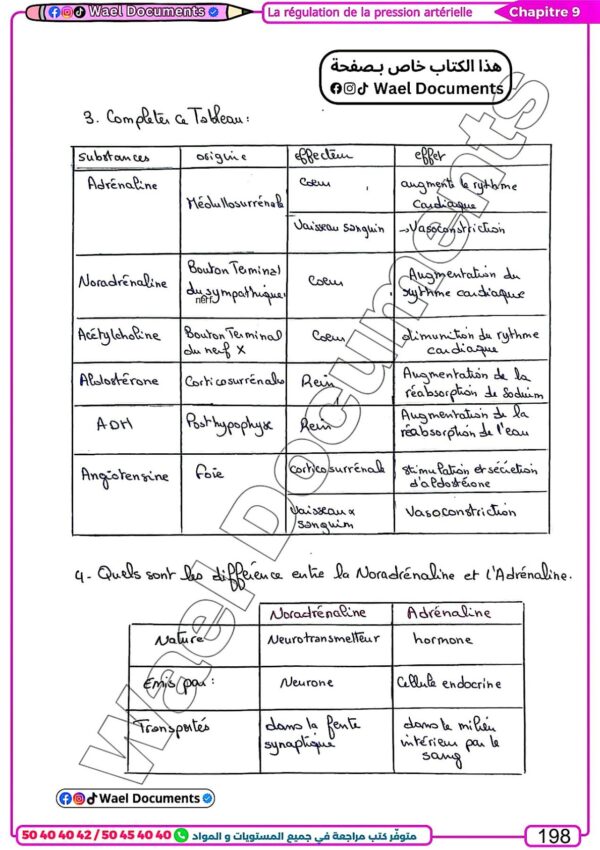 Wael Documents
La régulation de la pression artérielle
Chapitre 9
هذا الكتاب خاص بصفحة
Wael Documents
3. Completer ce Tableau:
substances origine effecteur effet
Adrénaline Médullosurrénale Coeur augmente le rythme
cardiaque
Vaisseau sanguin →Vasoconstriction
Noradrénaline Bouton Terminal
du sympathique
nerf
Coeur Augmentation du
rythme cardiaque
Acétylcholine Bouton Terminal
du nerf X
Coeur dimunition du rythme
cardiaque
Aldostérone Corticosurrénale Rein Augmentation de la
réabsorption de Soduim
ADH Posthypophyse Rein Augmentation de la
réabsorption de l'eau
Angiotensine foie Corticosurrénale stimulation et sécretion
d'aldostérone
Vaisseaux
sanguim
Vasoconstriction
4- Quels sont les différence entre la Noradrénaline et l'Adrénaline.
Noradrénaline Adrénaline
Nature Neurotransmetteur hormone
Emis par: Neurone Cellule endocrine
Transportés dans la fente
synaptique
dans le milieu
intérieur par le
sang
Wael Documents
Wael Documents
50 40 40 42 / 50 45 40 40 متوفر كتب مراجعة في جميع المستويات و المواد
198